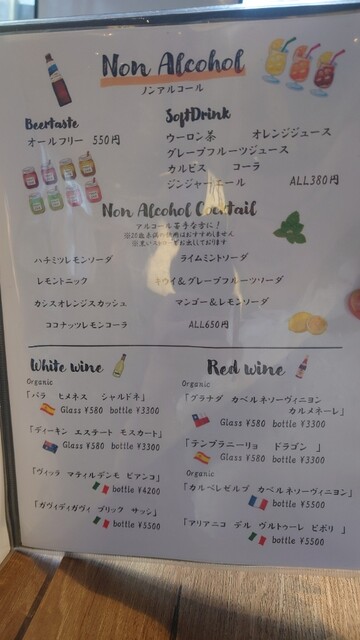 Non Alcohol
ノンアルコール
Beertaste
オールフリー 550円
SoftDrink
ウーロン茶 オレンジジュース
グレープフルーツジュース
カルピス コーラ
ジンジャーエール ALL380円
Non Alcohol Cocktail
アルコール苦手な方に!
ハチミツレモンソーダ ライムミントソーダ
レモントニック キウイ&グレープフルーツソーダ
カシスオレンジスカッシュ マンゴー&レモンソーダ
ココナッツレモンコーラ ALL650円
White wine
Organic
「パラ ヒメネス シャルドネ」
Glass ¥580 bottle ¥3300
「ディーキン エステート モスカート」
Glass ¥580 bottle ¥3300
「ヴィッラ マティルデンモ ビアンコ」
bottle ¥4200
「ガヴィディガヴィ ブリック サッシ」
bottle ¥5500
Red wine
Organic
「グラナダ カベルネソーヴィニヨン
カルメネーレ」
Glass ¥580 bottle ¥3300
「テンプラニーリョ ドラゴン 」
Glass ¥580 bottle ¥3300
Organic
「カルベレゼルブ カベルネソーヴィニヨン」
bottle ¥5500
「アリアニコ デル ヴルトゥーレ ピポリ 」
bottle ¥5500